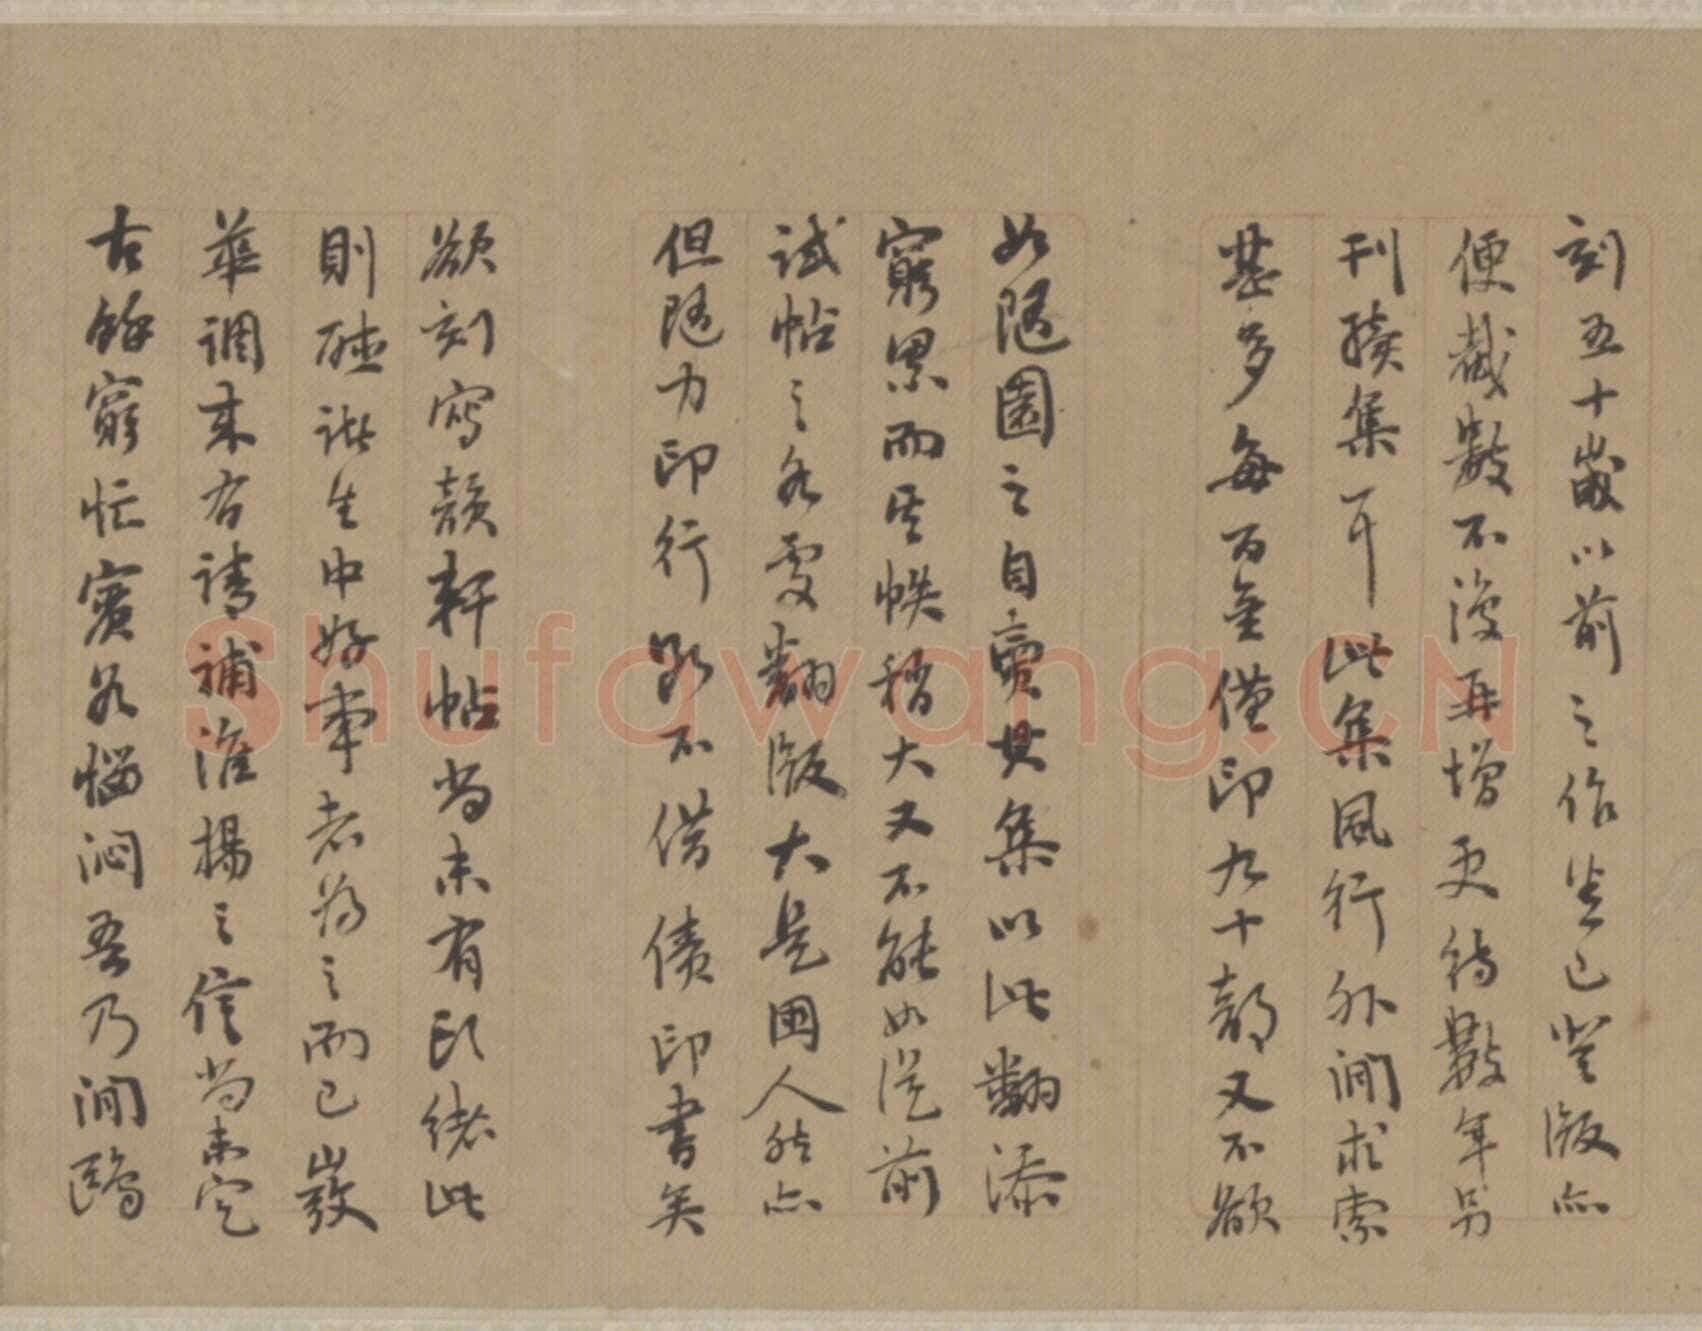 刻五十歲以前之作望已登版亦
便截數不復再增更待數年另
刊續集耳此集風行外間求索
甚多每百金僅印九十部又不欲
如隨園之自賣其集以此翻添
窮累而其帙稍大又不能如從前
試帖之各處翻版大是困人然亦
但隨力印行路不借債印書矣
欲刻寫韻軒帖尚未有頭緒此
則碰諸生中好事者為之而已崴
華調來省請補淮揚之信尚未定
古餘窮忙賓谷惱悶吾乃閒鷗
Shufawang.CN